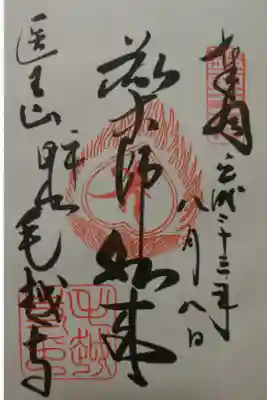 奉拝 平成二十三年
八月八日
薬師如来
医王山 平泉 毛越寺